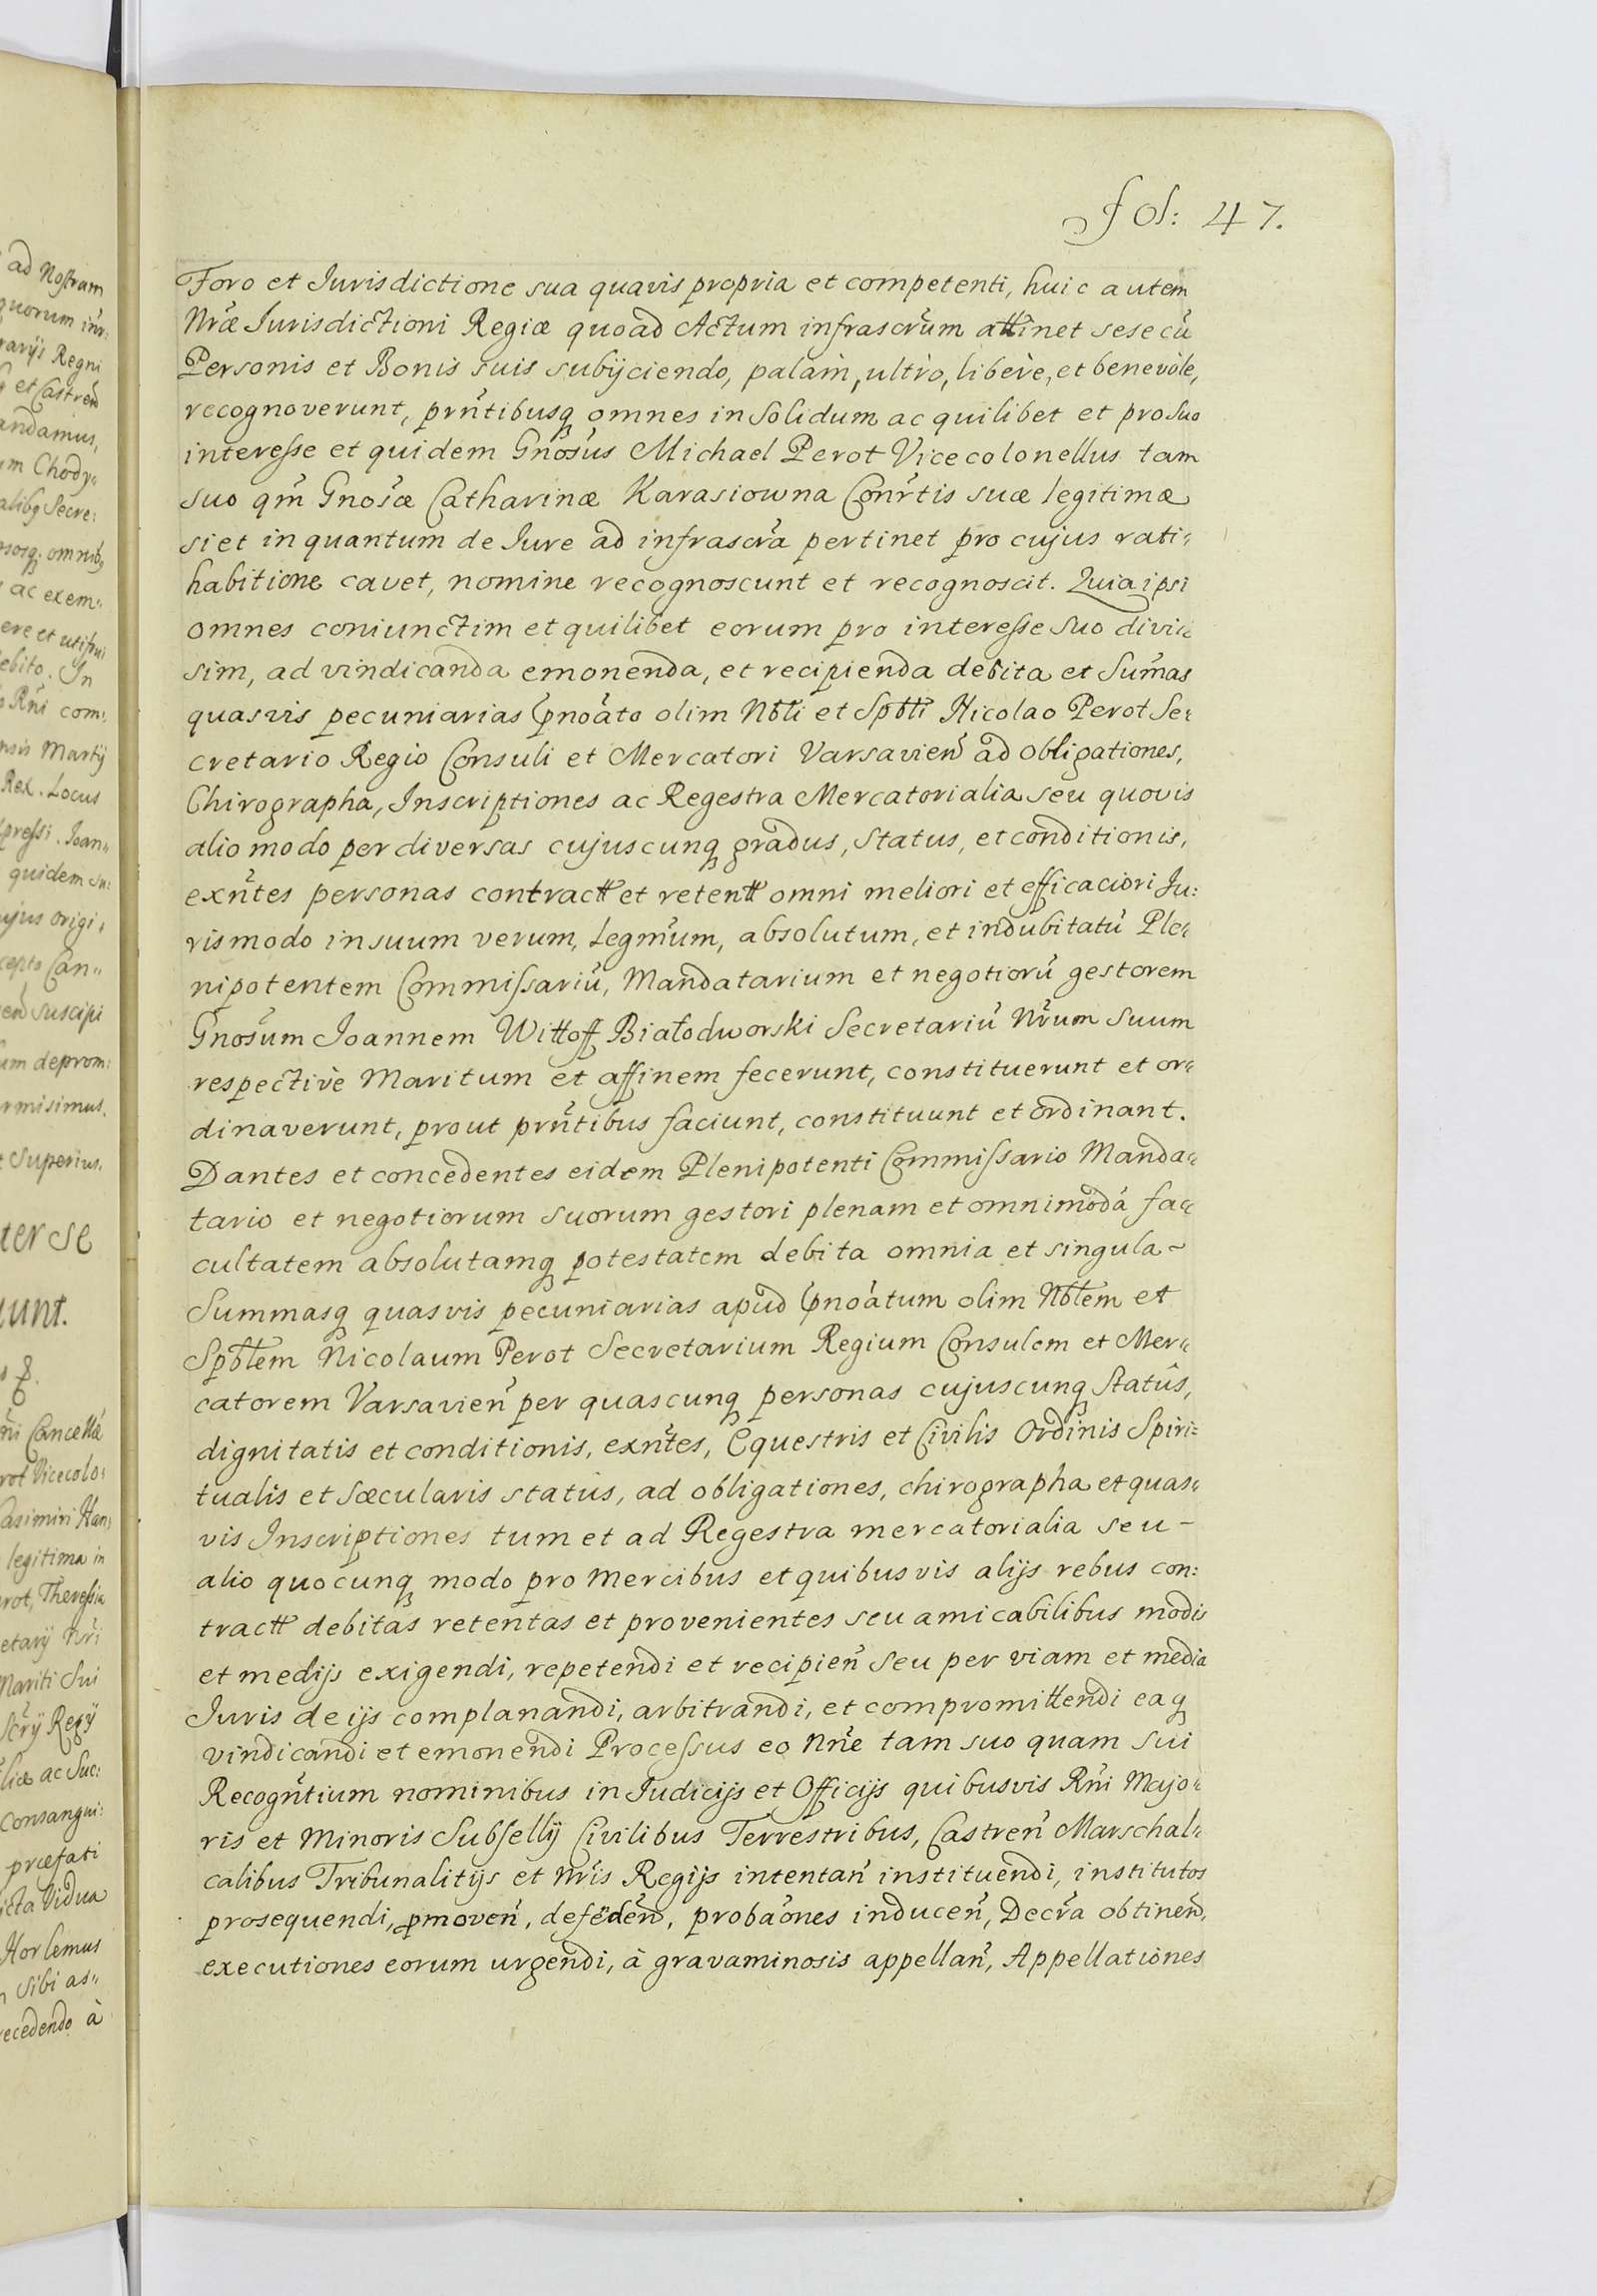 fol: 47.
Foro et Jurisdictione sua quavis propria et competenti, huic autem
Nr̃æ Jurisdictioni Regiæ quoad Actum infrascr̃um attinet sese cũ
Personis et Bonis suis subijciendo, palàm, ultrò, liberè, et benevòle,
recognoverunt, prñtibusq̃ omnes in Solidum ac quilibet et pro suo
interesse et quidem Gñosus Michael Perot Vicecolonellus tam
suo qm̃ Gñosæ Catharinæ Karasiowna Conr̃tis suæ legitimæ
si et in quantum de Jure ad infrascr̃a pertinet pro cujus rati„
habitione cavet, nomine recognoscunt et recognoscit. Quia ipsi
omnes coniunctim et quilibet eorum pro interesse suo divi„
sim, ad vindicanda emonenda, et recipienda debita et Sum̃as
quasvis pecuniarias p̃noãto olim Nb̃li et Spb̃li Nicolao Perot Se„
cretario Regio Consuli et Mercatori Varsavieñ ad Obligationes,
Chirographa, Inscriptiones ac Regestra Mercatorialia seu quovis
alio modo per diversas cujuscunq̃ gradus, status, et conditionis,
exñtes personas contractt et retentt omni meliori et efficaciori Ju:
ris modo in suum verum, Legmũm, absolutum, et indubitatũ Ple„
nipotentem Commissariũ, Mandatarium et negotiorũ gestorem
Gñosum Joannem Wittoff Białodworski Secretariũ Nr̃um suum
respectivè Maritum et affinem fecerunt, constituerunt et or„
dinaverunt, prout prñtibus faciunt, constituunt et ordinant.
Dantes et concedentes eidem Plenipotenti Commissario Manda„
tario et negotiorum suorum gestori plenam et omnimodã fa„
cultatem absolutamq̃ potestatem debita omnia et singula~
Summasq̃ quasvis pecuniarias apud p̃noãtum olim Nb̃lem et
Spb̃lem Nicolaum Perot Secretarium Regium Consulem et Mer„
catorem Varsavieñ per quascunq̃ personas cujuscunq̃ Statûs,
dignitatis et conditionis, exñtes, Equestris et Civilis Ordinis Spiri=
tualis et Sæcularis status, ad obligationes, chirographa et quas„
vis Inscriptiones tum et ad Regestra mercatorialia seu-
alio quocunq̃ modo pro Mercibus et quibusvis alijs rebus con:
tractt debitas retentas et provenientes seu amicabilibus modis
et medijs exigendi, repetendi et recipieñ seu per viam et media
Juris de ijs complanandi, arbitrandi, et compromittendi eaq̃
vindicandi et emonendi Processus eo Nñe tam suo quam sui
Recogñtium nominibus in Judicijs et Officijs quibusvis Rñi Majo„
ris et Minoris Subsellij Civilibus Terrestribus, Castreñ Marschal„
calibus Tribunalitijs et Nr̃is Regijs intentañ instituendi, institutos
prosequendi, p̱moveñ, defẽdeñ, probaõnes induceñ, Decr̃a obtineñ,
executiones eorum urgendi, à gravaminosis appellañ, Appellationes